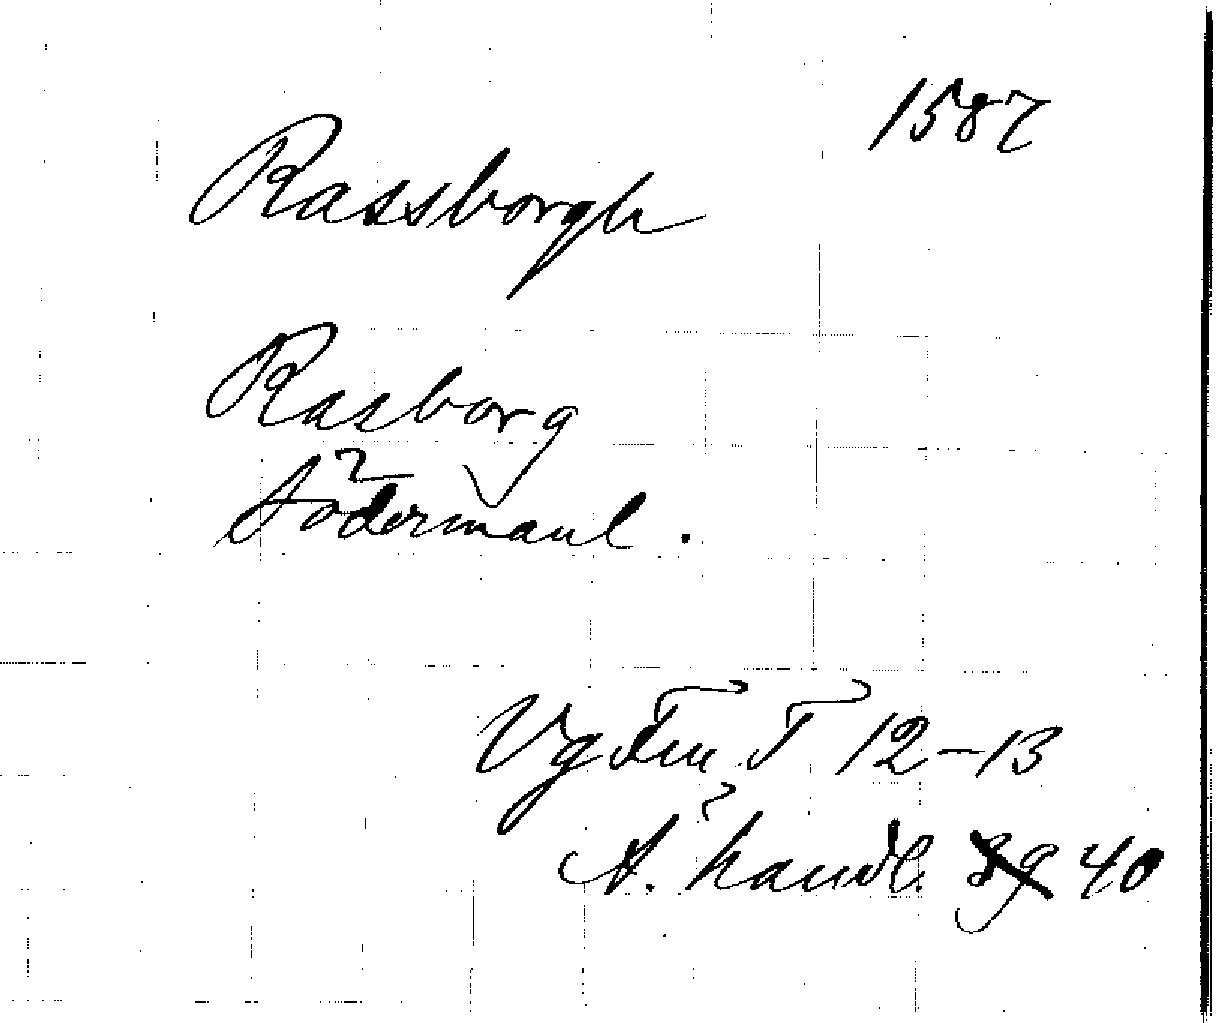 1587
Rassborgh
Rasborg
Södermanl.
Vg Fru T 12-13
A. handl. 40